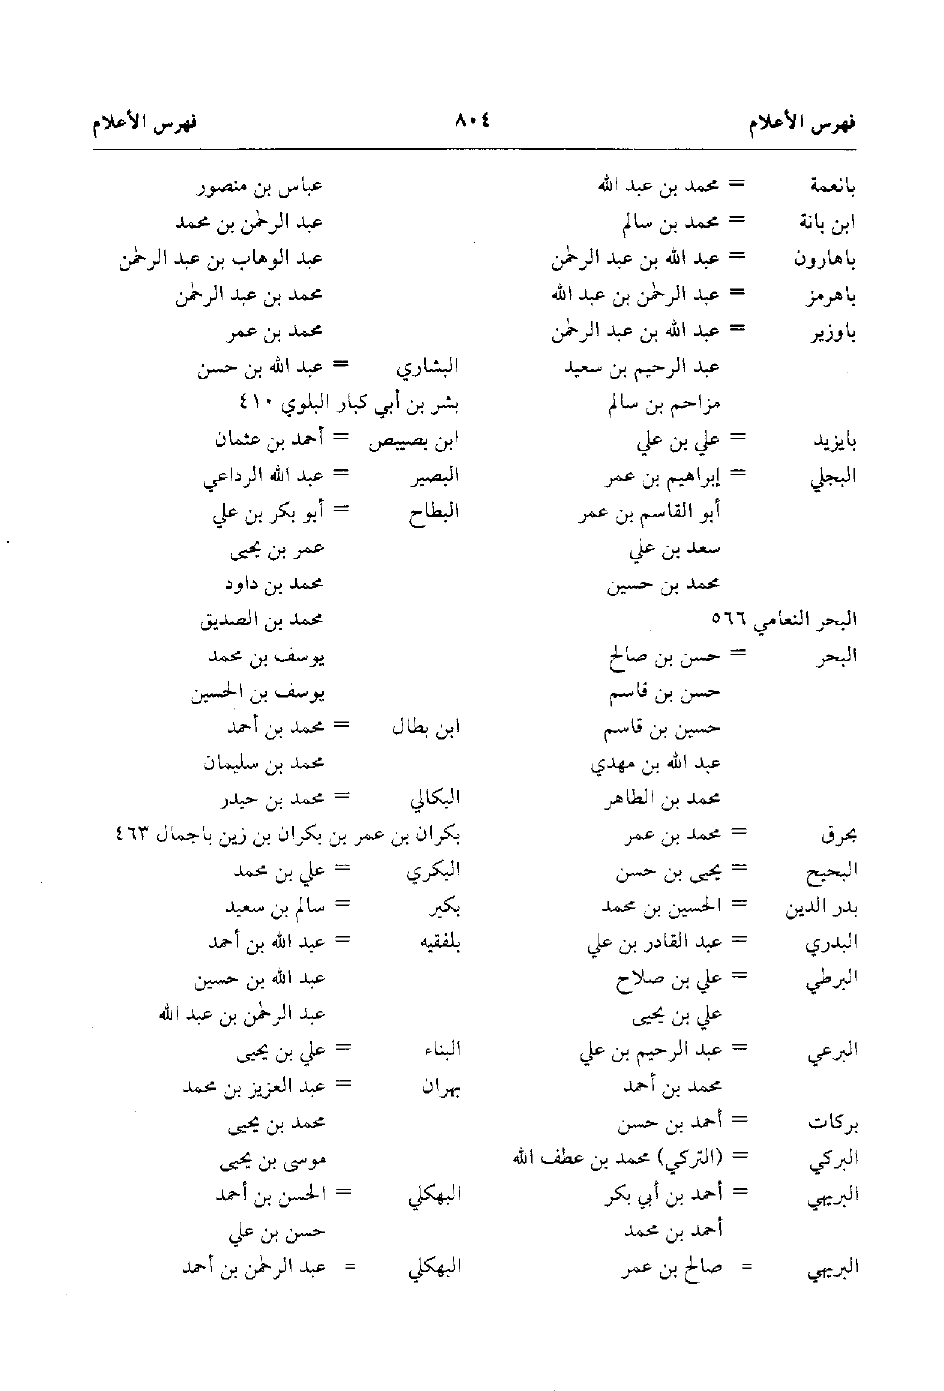 فهرس الأعلام ٨٠٤ فهرس الأعلام
بانعمة = محمد بن عبد الله
ابن بانة = محمد بن سالم
باهارون = عبد الله بن عبد الرحمن
باهرمز = عبد الرحمن بن عبد الله
باوزير = عبد الله بن عبد الرحمن
عبد الرحيم بن سعيد
مزاحم بن سالم
بايزيد = علي بن علي
البجلي = إبراهيم بن عمر
أبو القاسم بن عمر
سعد بن علي
محمد بن حسين
البحر النعامي ٥٦٦
البحر = حسن بن صالح
حسن بن قاسم
حسين بن قاسم
عبد الله بن مهدي
محمد بن الطاهر
بحرق = محمد بن عمر
البحيح = يحيى بن حسن
بدر الدين = الحسين بن محمد
البدري = عبد القادر بن علي
البرطي = علي بن صلاح
علي بن يحيى
البرعي = عبد الرحيم بن علي
محمد بن أحمد
بركات = أحمد بن حسن
البركي = (التركي) محمد بن عطف الله
البريهي = أحمد بن أبي بكر
أحمد بن محمد
البريهي = صالح بن عمر
عباس بن منصور
عبد الرحمن بن محمد
عبد الوهاب بن عبد الرحمن
محمد بن عبد الرحمن
محمد بن عمر
البشاري = عبد الله بن حسن
بشر بن أبي كبار البلوي ٤١٠
ابن بصيبص = أحمد بن عثمان
البصير = عبد الله الرداعي
البطاح = أبو بكر بن علي
عمر بن يحيى
محمد بن داود
محمد بن الصديق
يوسف بن محمد
يوسف بن الحسين
ابن بطال = محمد بن أحمد
محمد بن سليمان
البكالي = محمد بن حيدر
بكران بن عمر بن بكران بن زين باجمال ٤٦٣
البكري = علي بن محمد
بكير = سالم بن سعيد
بلفقيه = عبد الله بن أحمد
عبد الله بن حسين
عبد الرحمن بن عبد الله
البناء = علي بن يحيى
بهران = عبد العزيز بن محمد
محمد بن يحيى
موسى بن يحيى
البهكلي = الحسن بن أحمد
حسن بن علي
البهكلي = عبد الرحمن بن أحمد